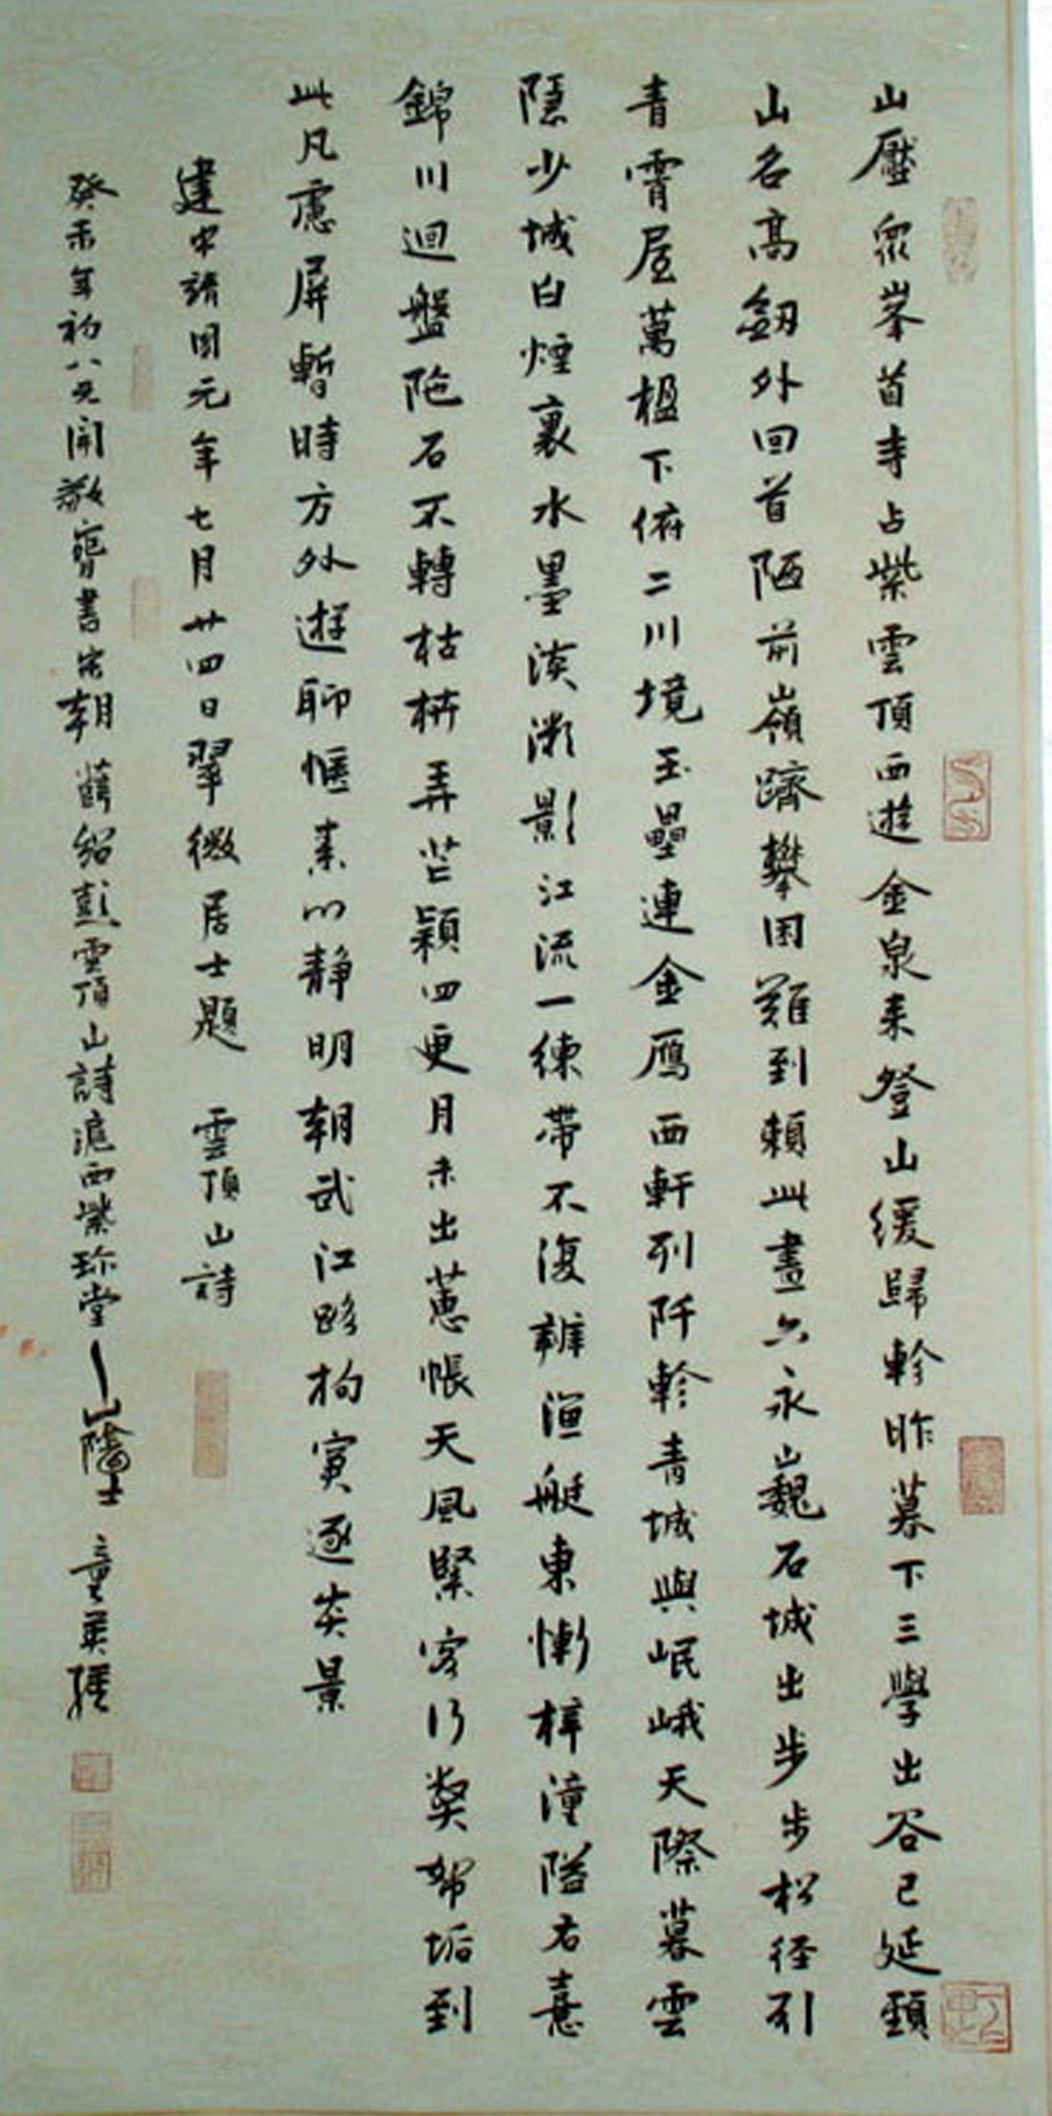 山壓眾峯首寺占紫雲頂西遊金泉來登山緩歸軫昨暮下三學出谷已延頸
山名高劒外回首陋前嶺躋攀困難到賴此晝六永巍石城出步步松徑引
青霄屋萬楹下俯二川境玉壘連金雁西軒列阡軫青城與岷峨天際暮雲
隱少城白煙裏水墨淡漸影江流一練帶不復辨漁艇東慚梓潼隘右意
錦川迴盤陁石不轉枯栟弄芒穎四更月未出蕙帳天風緊客行弊帶垢到
此凡慮屏暫時方外遊聊愜素心靜明朝武江路拘窘逐炎景
建中靖國元年七月廿四日翠微居士題 雲頂山詩
癸未年初八元開敬齋書宋朝薛紹彭雲頂山詩滬西紫珍堂山陰士童英